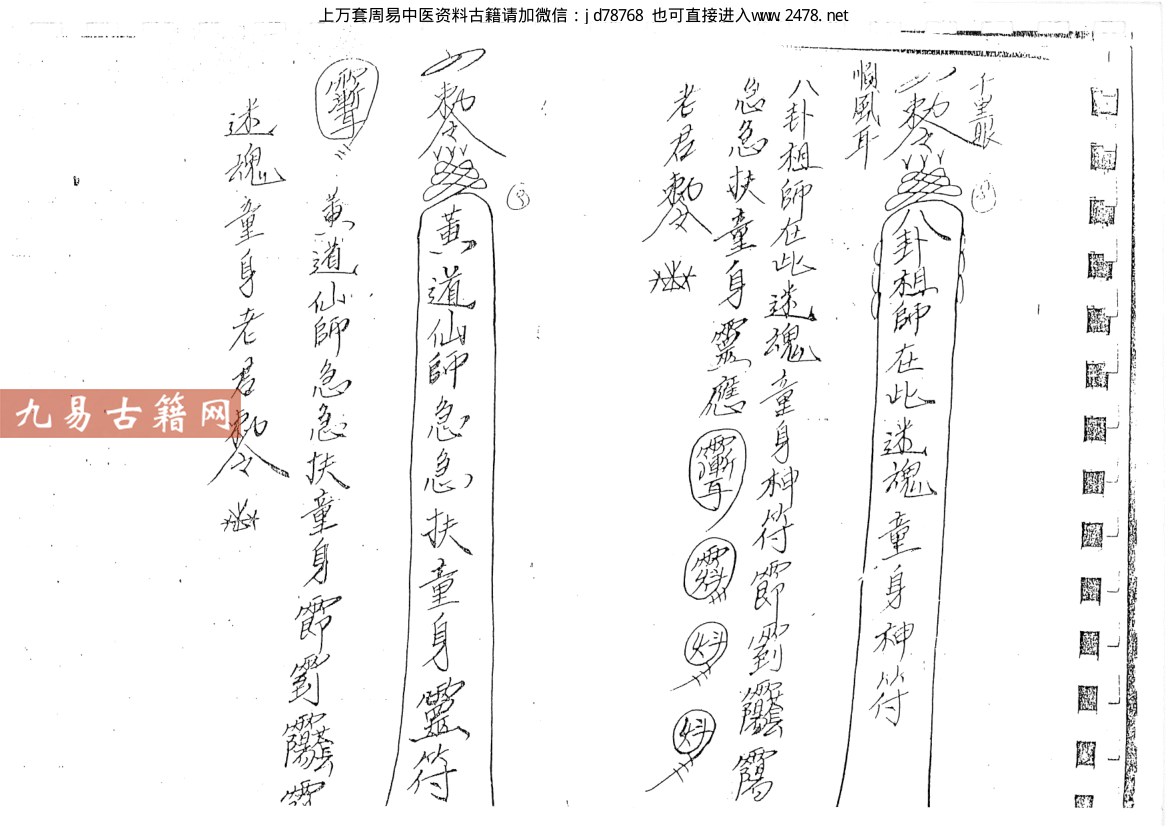 上万套周易中医资料古籍请加微信：jd78768 也可直接进入www.2478.net
千里眼
順風耳
敕令
八卦祖師在此迷魂童身神符
八卦祖師在此迷魂童身神符
急急扶童身靈應
老君敕令
敕令
黃道仙師急急扶童身靈符
黃道仙師急急扶童身
迷魂童身老君敕令
九易古籍网